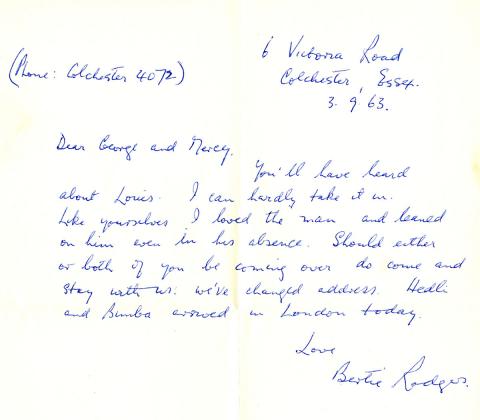 6 Victoria Road
(Phone: Colchester 4072)
Colchester, Essex.
3. 9. 63.
Dear George and Mercy.
You'll have heard
about Louis. I can hardly take it in.
Like yourselves I loved the man and leaned
on him even in his absence. Should either
or both of you be coming over do come and
stay with us. We've changed address. Hedli
and Bimba arrived in London today.
Love
Bertie Rodgers.